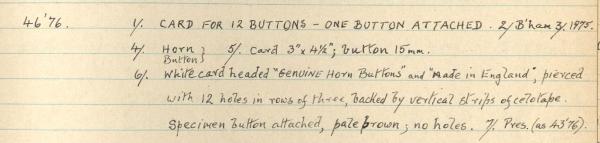 46'76. 1/. CARD FOR 12 BUTTONS - ONE BUTTON ATTACHED. 2/ B'ham 3/. 1975.
4/. Horn } Button } 5/. Card 3" x 4½"; button 15mm.
6/. White card headed "GENUINE Horn Buttons" and "Made in England", pierced
with 12 holes in rows of three, backed by vertical strips of celotape.
Specimen button attached, pale brown; no holes. 7/. Pres. (as 43'76).